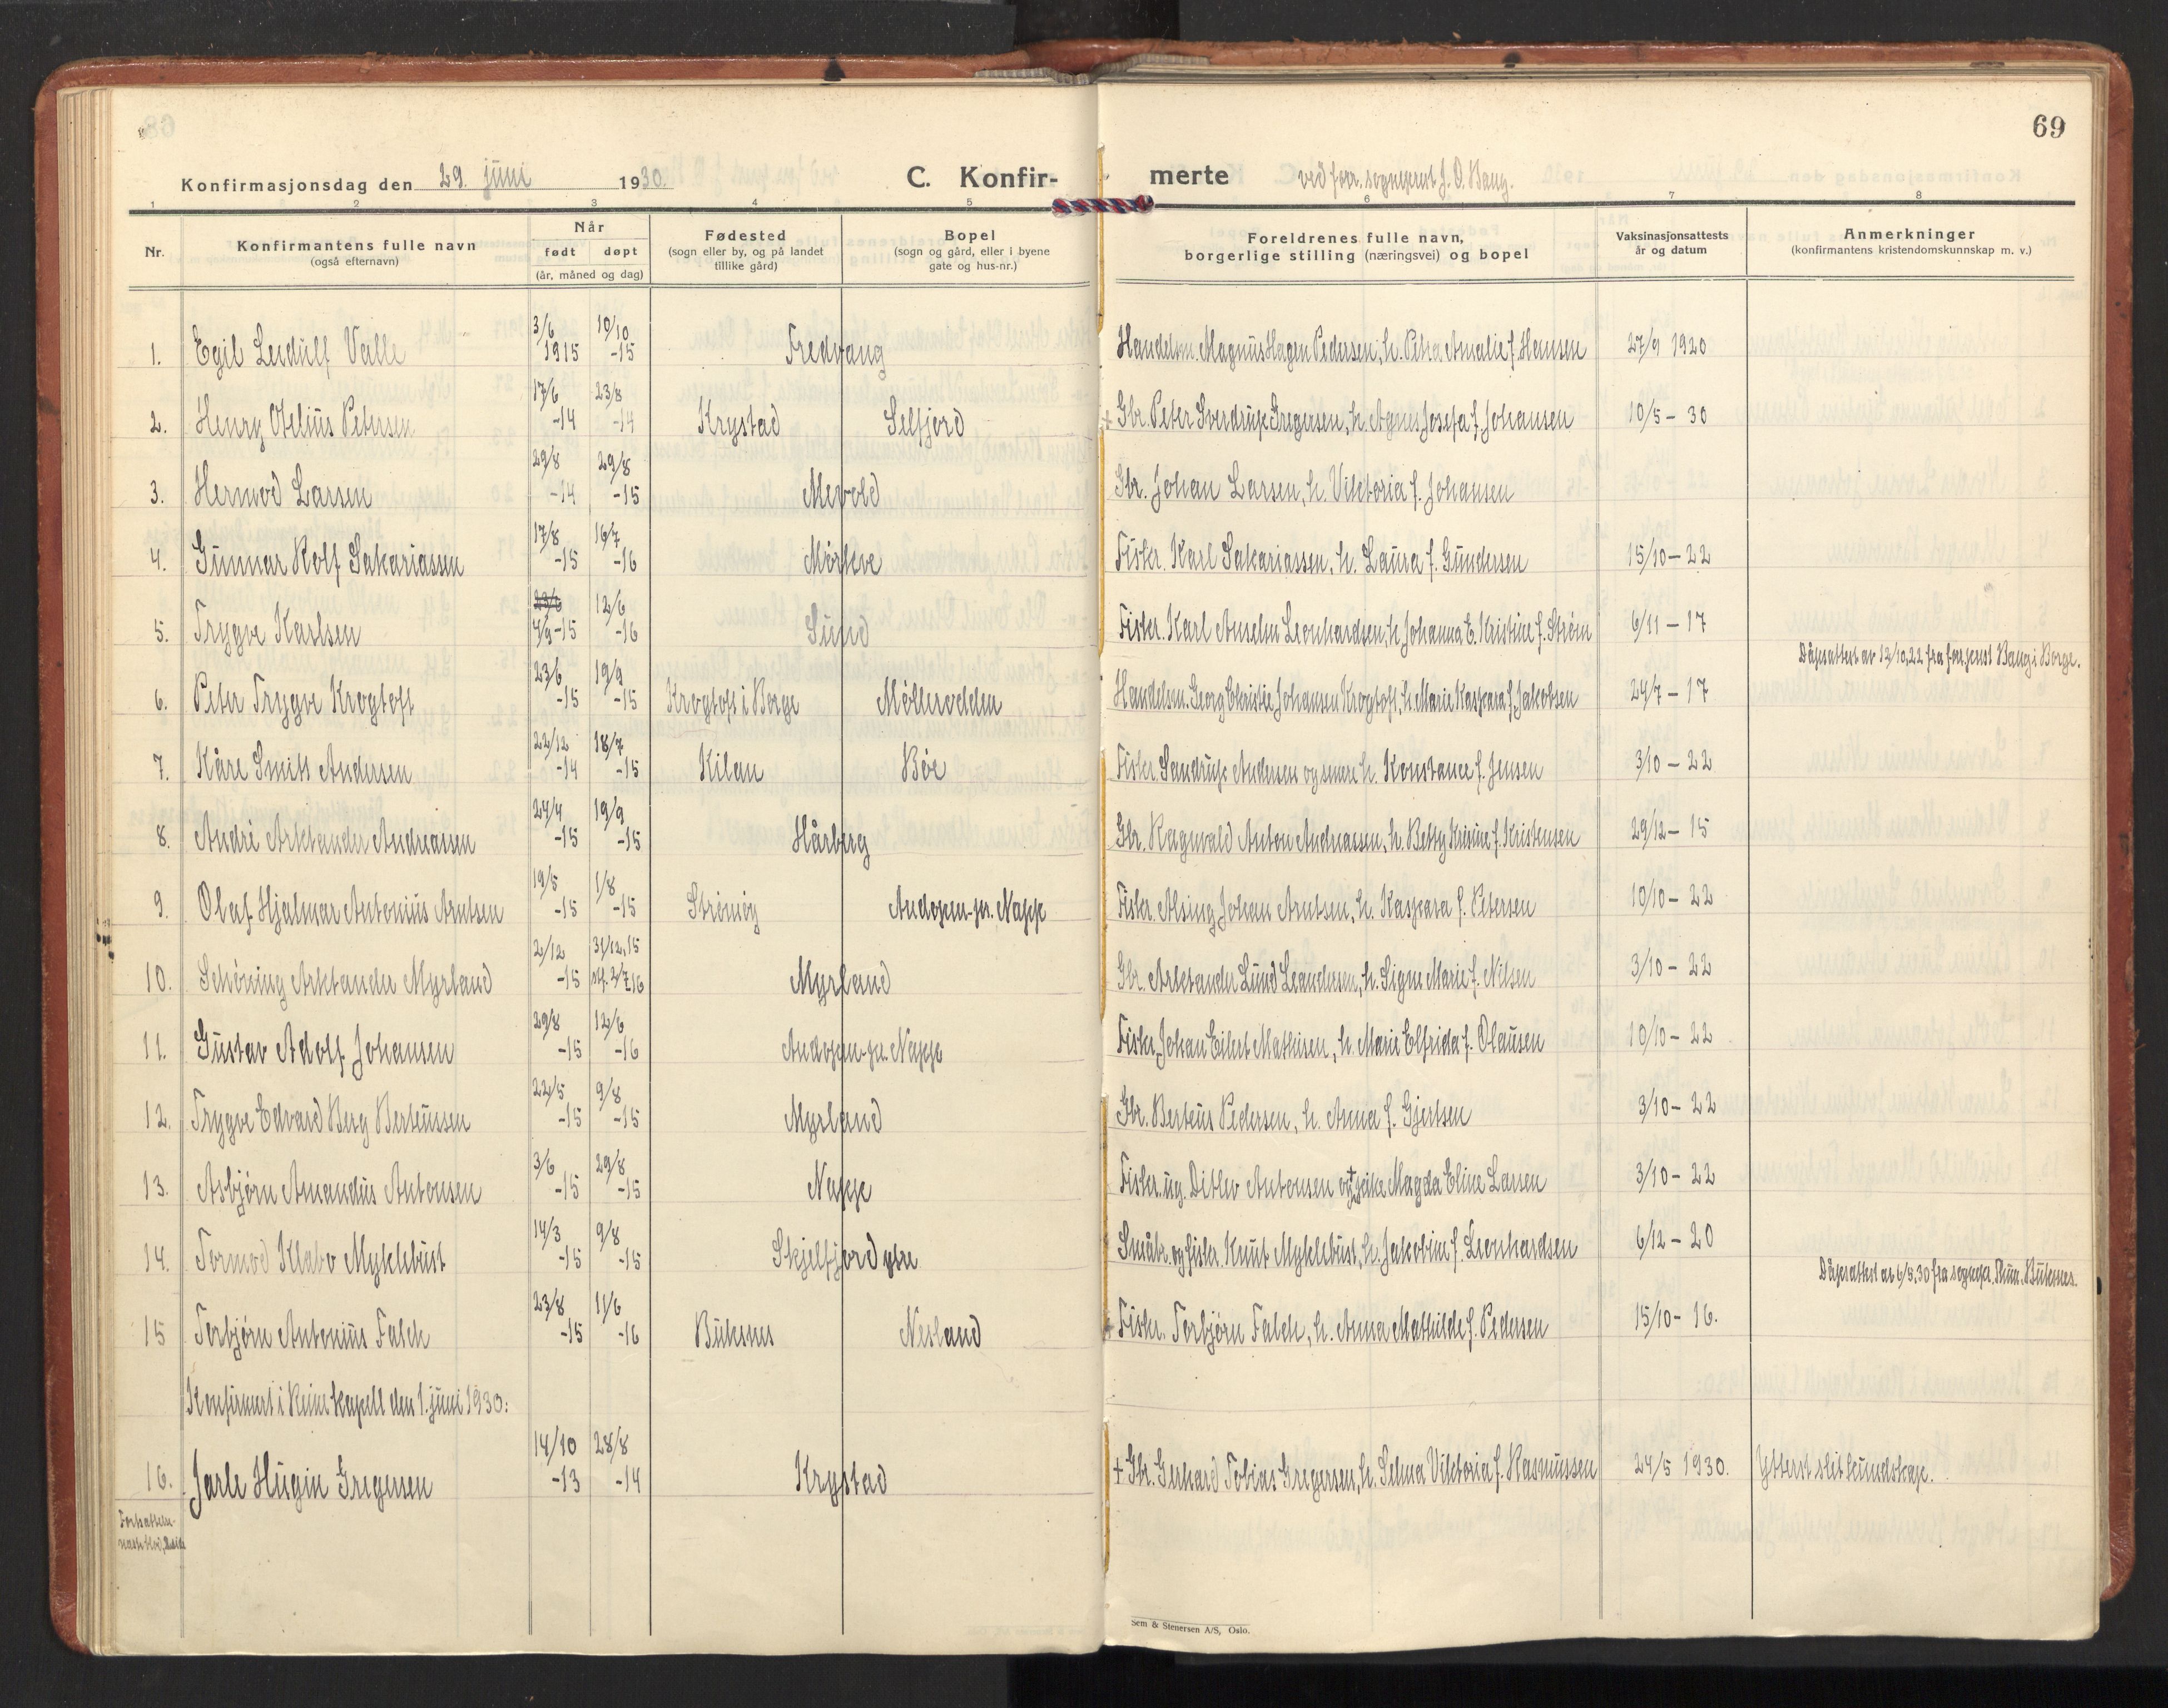 69
Konfirmasjonsdag den 29. juni 1930. C. Konfir- merte ved forr. sogneprest J. O. Bang.
1 2 3 4 5 6 7 8
Nr. Konfirmantens fulle navn (også efternavn) Når født døpt (år, måned og dag) Fødested (sogn eller by, og på landet tillike gård) Bopel (sogn og gård, eller i byene gate og hus-nr.) Foreldrenes fulle navn, borgerlige stilling (næringsvei) og bopel Vaksinasjonsattests år og datum Anmerkninger (konfirmantens kristendomskunnskap m. v.)
1. Egil Leidulf Valle 3/6 1915 10/10 -15 Fredvang Handelsm. Magnus Hagen Pedersen, h. Petra Amalie f. Hansen 27/9 1920
2. Henry Otelius Petersen 17/6 -14 23/8 -14 Krystad Selfjord + Gbr. Peter Sverdrup Gregersen, h. Agnes Josefa f. Johansen 10/5 - 30
3. Hermod Larsen 29/8 -14 29/8 -15 Mevold Gbr. Johan Larsen, h. Viktoria f. Johansen
4. Gunnar Rolf Sakariassen 17/8 -15 16/7 -16 Mørkve Fisker. Karl Sakariassen, h. Laura f. Gundersen 15/10 - 22
5. Trygve Karlsen 23/6 4/9 -15 12/6 -16 Sund Fisker. Karl Anselm Leonhardsen, h. Johanna E. Kristine f. Strøm 6/11 - 17
Dåpsattest av 12/10.22 fra sogneprest Bang i Borge.
6. Peter Trygve Krogtoft 23/6 -15 19/9 -15 Krogtoft i Borge Møllerodden Handelsm. Georg Christie Johansen Krogtoft, h. Marie Kaspara f. Jakobsen 24/7 - 17
7. Kåre Smith Andersen 22/12 -14 18/7 -15 Kilan Bøe Fisker. Sandrup Andersen og h. Konstance f. Jensen 3/10 - 22
8. André Arktander Andreassen 24/4 -15 19/9 -15 Hårberg Gbr. Ragnvald Anton Andreassen, h. Betty Kristine f. Kristensen 29/12 - 15
9. Olaf Hjalmar Antonius Arntsen 19/5 -15 1/8 -15 Strømøy Andopen pr. Napp Fisker. Alsing Johan Arntsen, h. Kaspara f. Petersen 10/10 - 22
10. Schøning Arktander Myrland 2/12 -15 31/12.15 stf. 2/7 16 Myrland Gbr. Arktander Lund Leandersen, h. Signe Marie f. Nilsen 3/10 - 22
11. Gustav Adolf Johansen 29/8 -15 12/6 -16 Andopen pr. Napp Fisker. Johan Eilert Mathisen, h. Marie Elfrida f. Olausen 10/10 - 22
12. Trygve Edvard Berg Berteussen 22/5 -15 9/8 -15 Myrland Gbr. Berteus Pedersen, h. Anna f. Gjertsen 3/10 - 22
13. Asbjørn Amandus Antonsen 3/6 -15 29/8 -15 Napp Fisker. ug. Ditlev Antonsen og + pike Magda Eline Larsen 3/10 - 22
14. Tormod Klabo Myklebust 14/3 -15 9/8 -15 Skjelfjord ytre Småbr. og fisker Knut Myklebust, h. Jakobine f. Leonhardsen 6/12 - 20
Dåpsattest av 6/5.30 fra sognepr. Buksnes.
15 Torbjørn Antonius Falch 23/8 -15 11/6 -16 Buksnes Nesland Fisker. Torbjørn Falch, h. Anna Mathilde f. Pedersen 15/10 - 16.
Konfirmert i Reine kapell den 1. juni 1930:
16. Jarle Hugin Gregersen 14/10 -13 28/8 -14 Krystad + Gbr. Gerhard Tobias Gregersen, h. Selma Viktoria f. Rasmussen 24/5 1930. Ytterst slit kundskap.
Fortsættelse
næste
Sem & Stenersen A/S, Oslo.